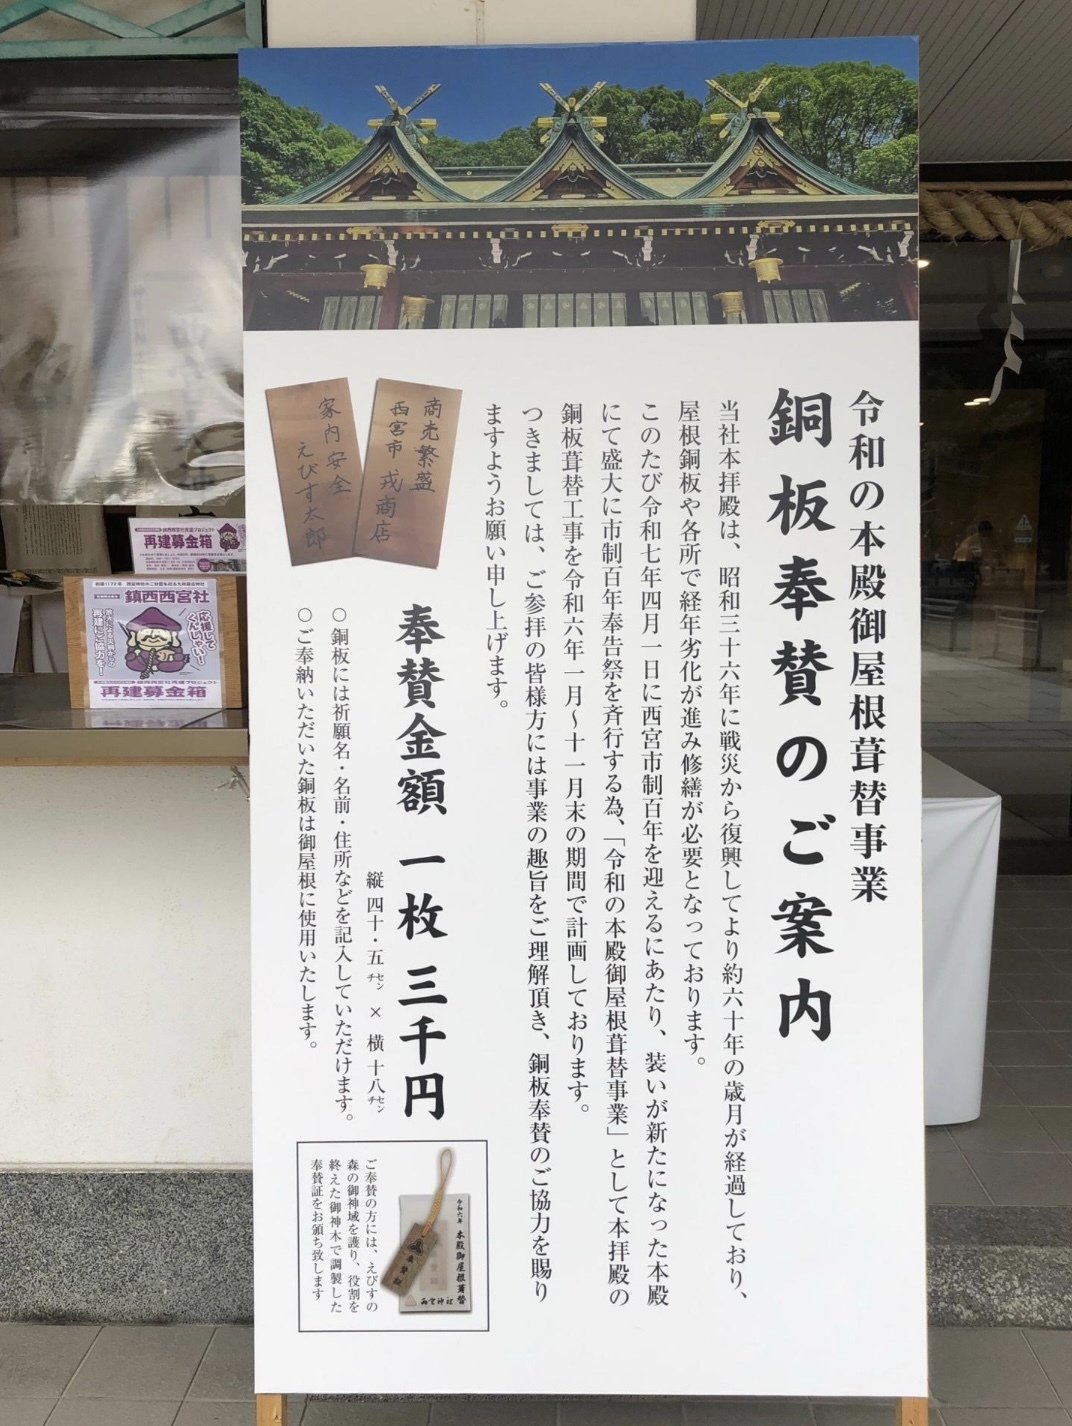 令和の本殿御屋根葺替事業
銅板奉賛のご案内
当社本拝殿は、昭和三十六年に戦災から復興してより約六十年の歳月が経過しており、
屋根銅板や各所で経年劣化が進み修繕が必要となっております。
このたび令和七年四月一日に西宮市制百年を迎えるにあたり、装いが新たになった本殿
にて盛大に市制百年奉告祭を斉行する為、「令和の本殿御屋根葺替事業」として本拝殿の
銅板葺替工事を令和六年一月～十一月末の期間で計画しております。
つきましては、ご参拝の皆様方には事業の趣旨をご理解頂き、銅板奉賛のご協力を賜り
ますようお願い申し上げます。
商売繁盛
西宮市 戎商店
家内安全
えびす太郎
奉賛金額 一枚 三千円
縦 四十・五㌢ × 横 十八㌢
○銅板には祈願名・名前・住所などを記入していただけます。
○ご奉納いただいた銅板は御屋根に使用いたします。
令和六年 本殿御屋根葺替
奉賛証
西宮神社
ご奉賛の方には、えびすの
森の御神域を護り、役割を
終えた御神木で調製した
奉賛証をお頒ち致します
再建募金箱
鎮西西宮社
応援して
くんしゃい!
再建にご協力を!
再建募金箱